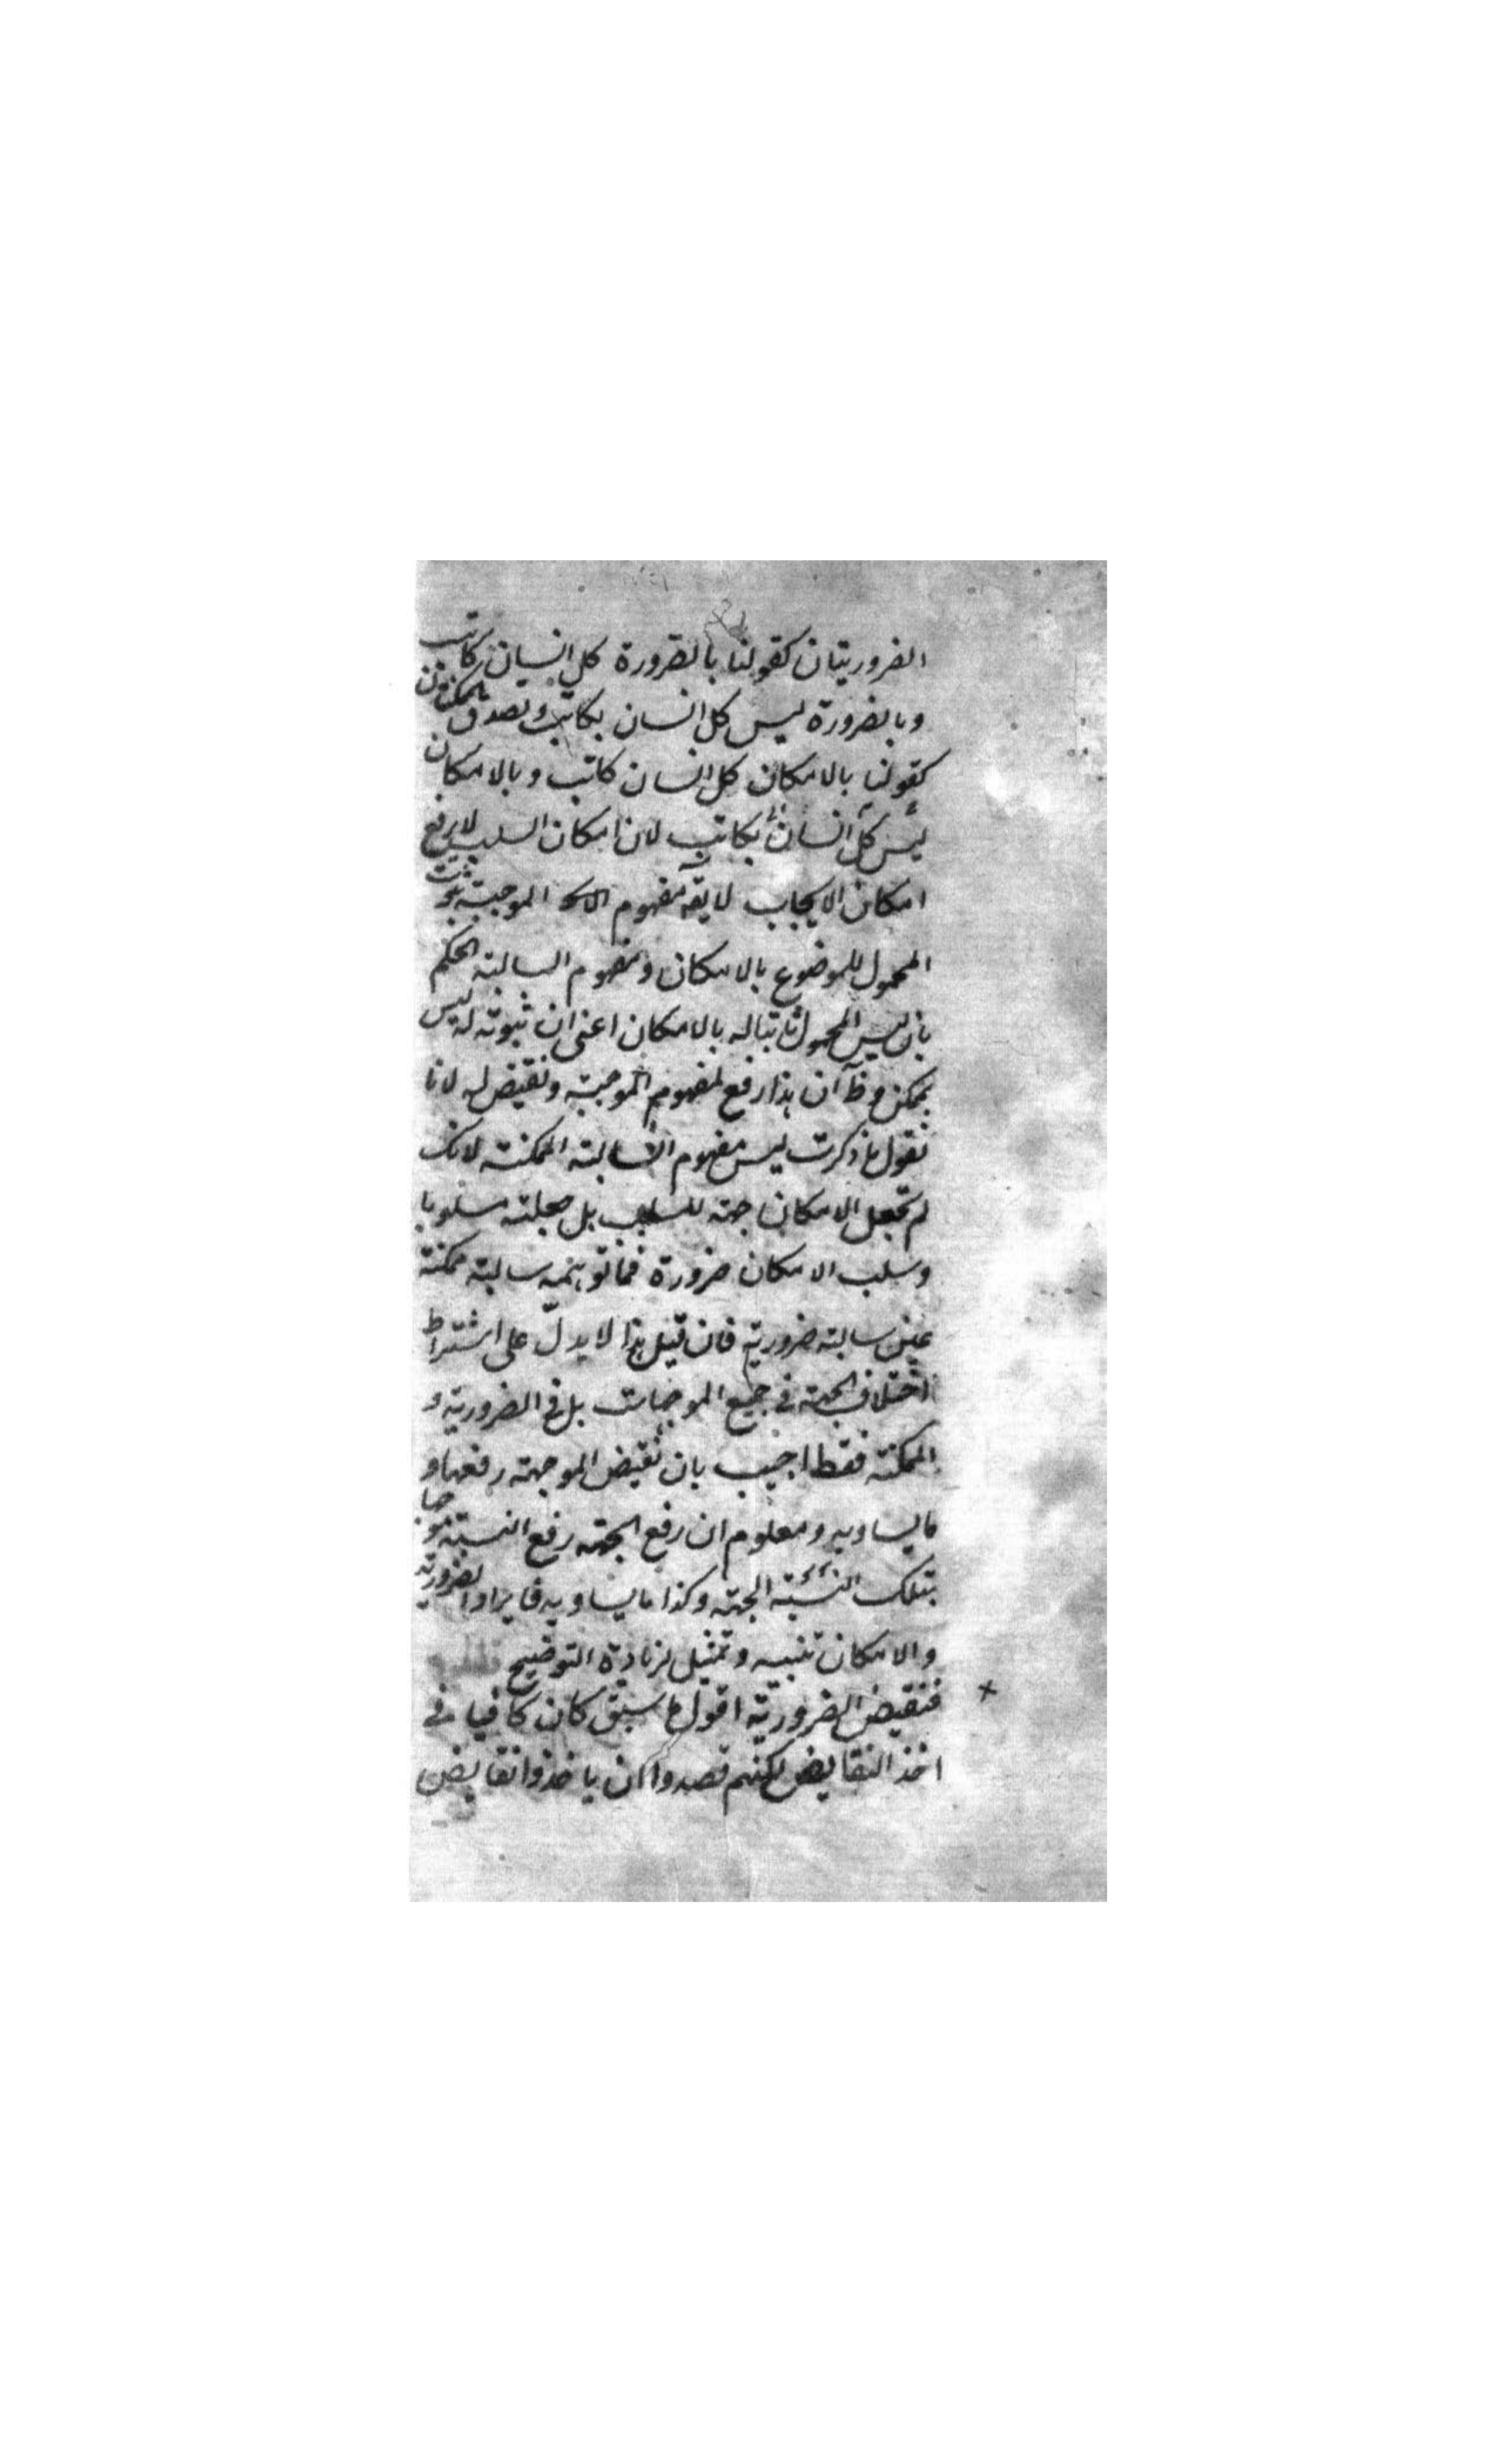 الضروريتان كقولنا بالضرورة كل انسان كاتب
وبالضرورة ليس كل انسان بكاتب وتصدق الممكنتان
كقولنا بالامكان كل انسان كاتب وبالامكان
ليس كل انسان بكاتب لان امكان السلب لا يرفع
امكان الايجاب لا يقه مفهوم الموجبة ثبوت
المحمول للموضوع بالامكان ومفهوم السالبة الحكم
بان ليس المحمول ثابتا له بالامكان اعنى ان ثبوته له ليس
بممكن وظ ان هذا رفع لمفهوم الموجبة ونقيض له لانا
نقول ما ذكرت ليس مفهوم السالبة الممكنة لانك
لم تجعل الامكان جهة للسلب بل جعلته مسلوبا
وسلب الامكان ضرورة فما توهمه سالبة ممكنة
عين سالبة ضرورية فان قيل هذا لا يدل على اشتراط
اختلاف الجهة في جميع الموجهات بل في الضرورية و
الممكنة فقط اجيب بان نقيض الموجهة رفعها و
ما يساويه ومعلوم ان رفع الجهة رفع النسبة
بتلك الجهة وكذا ما يساويه فايراد الضرورية
والامكان تنبيه وتمثيل لزيادة التوضيح
فنقيض الضرورية اقول ما سبق كان كافيا في
اخذ النقايض لكنهم قصدوا ان ياخذوا نقايض